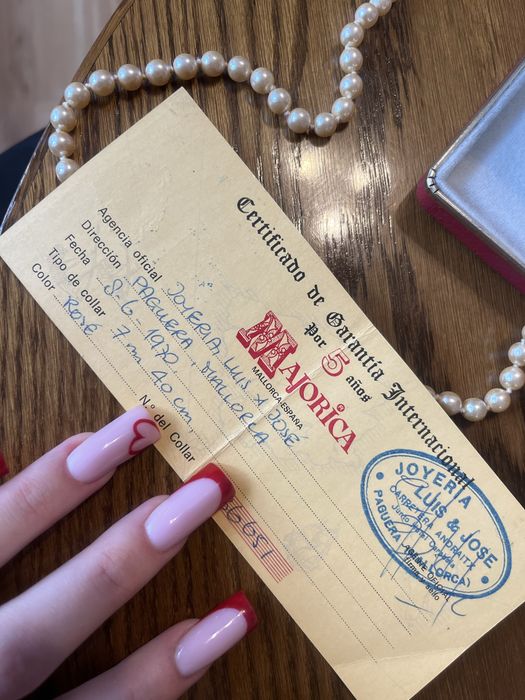 Certificado de Garantía Internacional
Por 5 años
MAJORICA
MALLORCA-ESPAÑA
Agencia oficial JOYERIA LUIS Y JOSÉ
Dirección PAGUERA, MALLORCA
Fecha 8-6-1970.
Tipo de collar 7 m 40 cm.
Color ROSÉ
N.º del Collar
6651
JOYERIA
LUIS & JOSE
CARRETERA ANDRAITX
PAGUERA